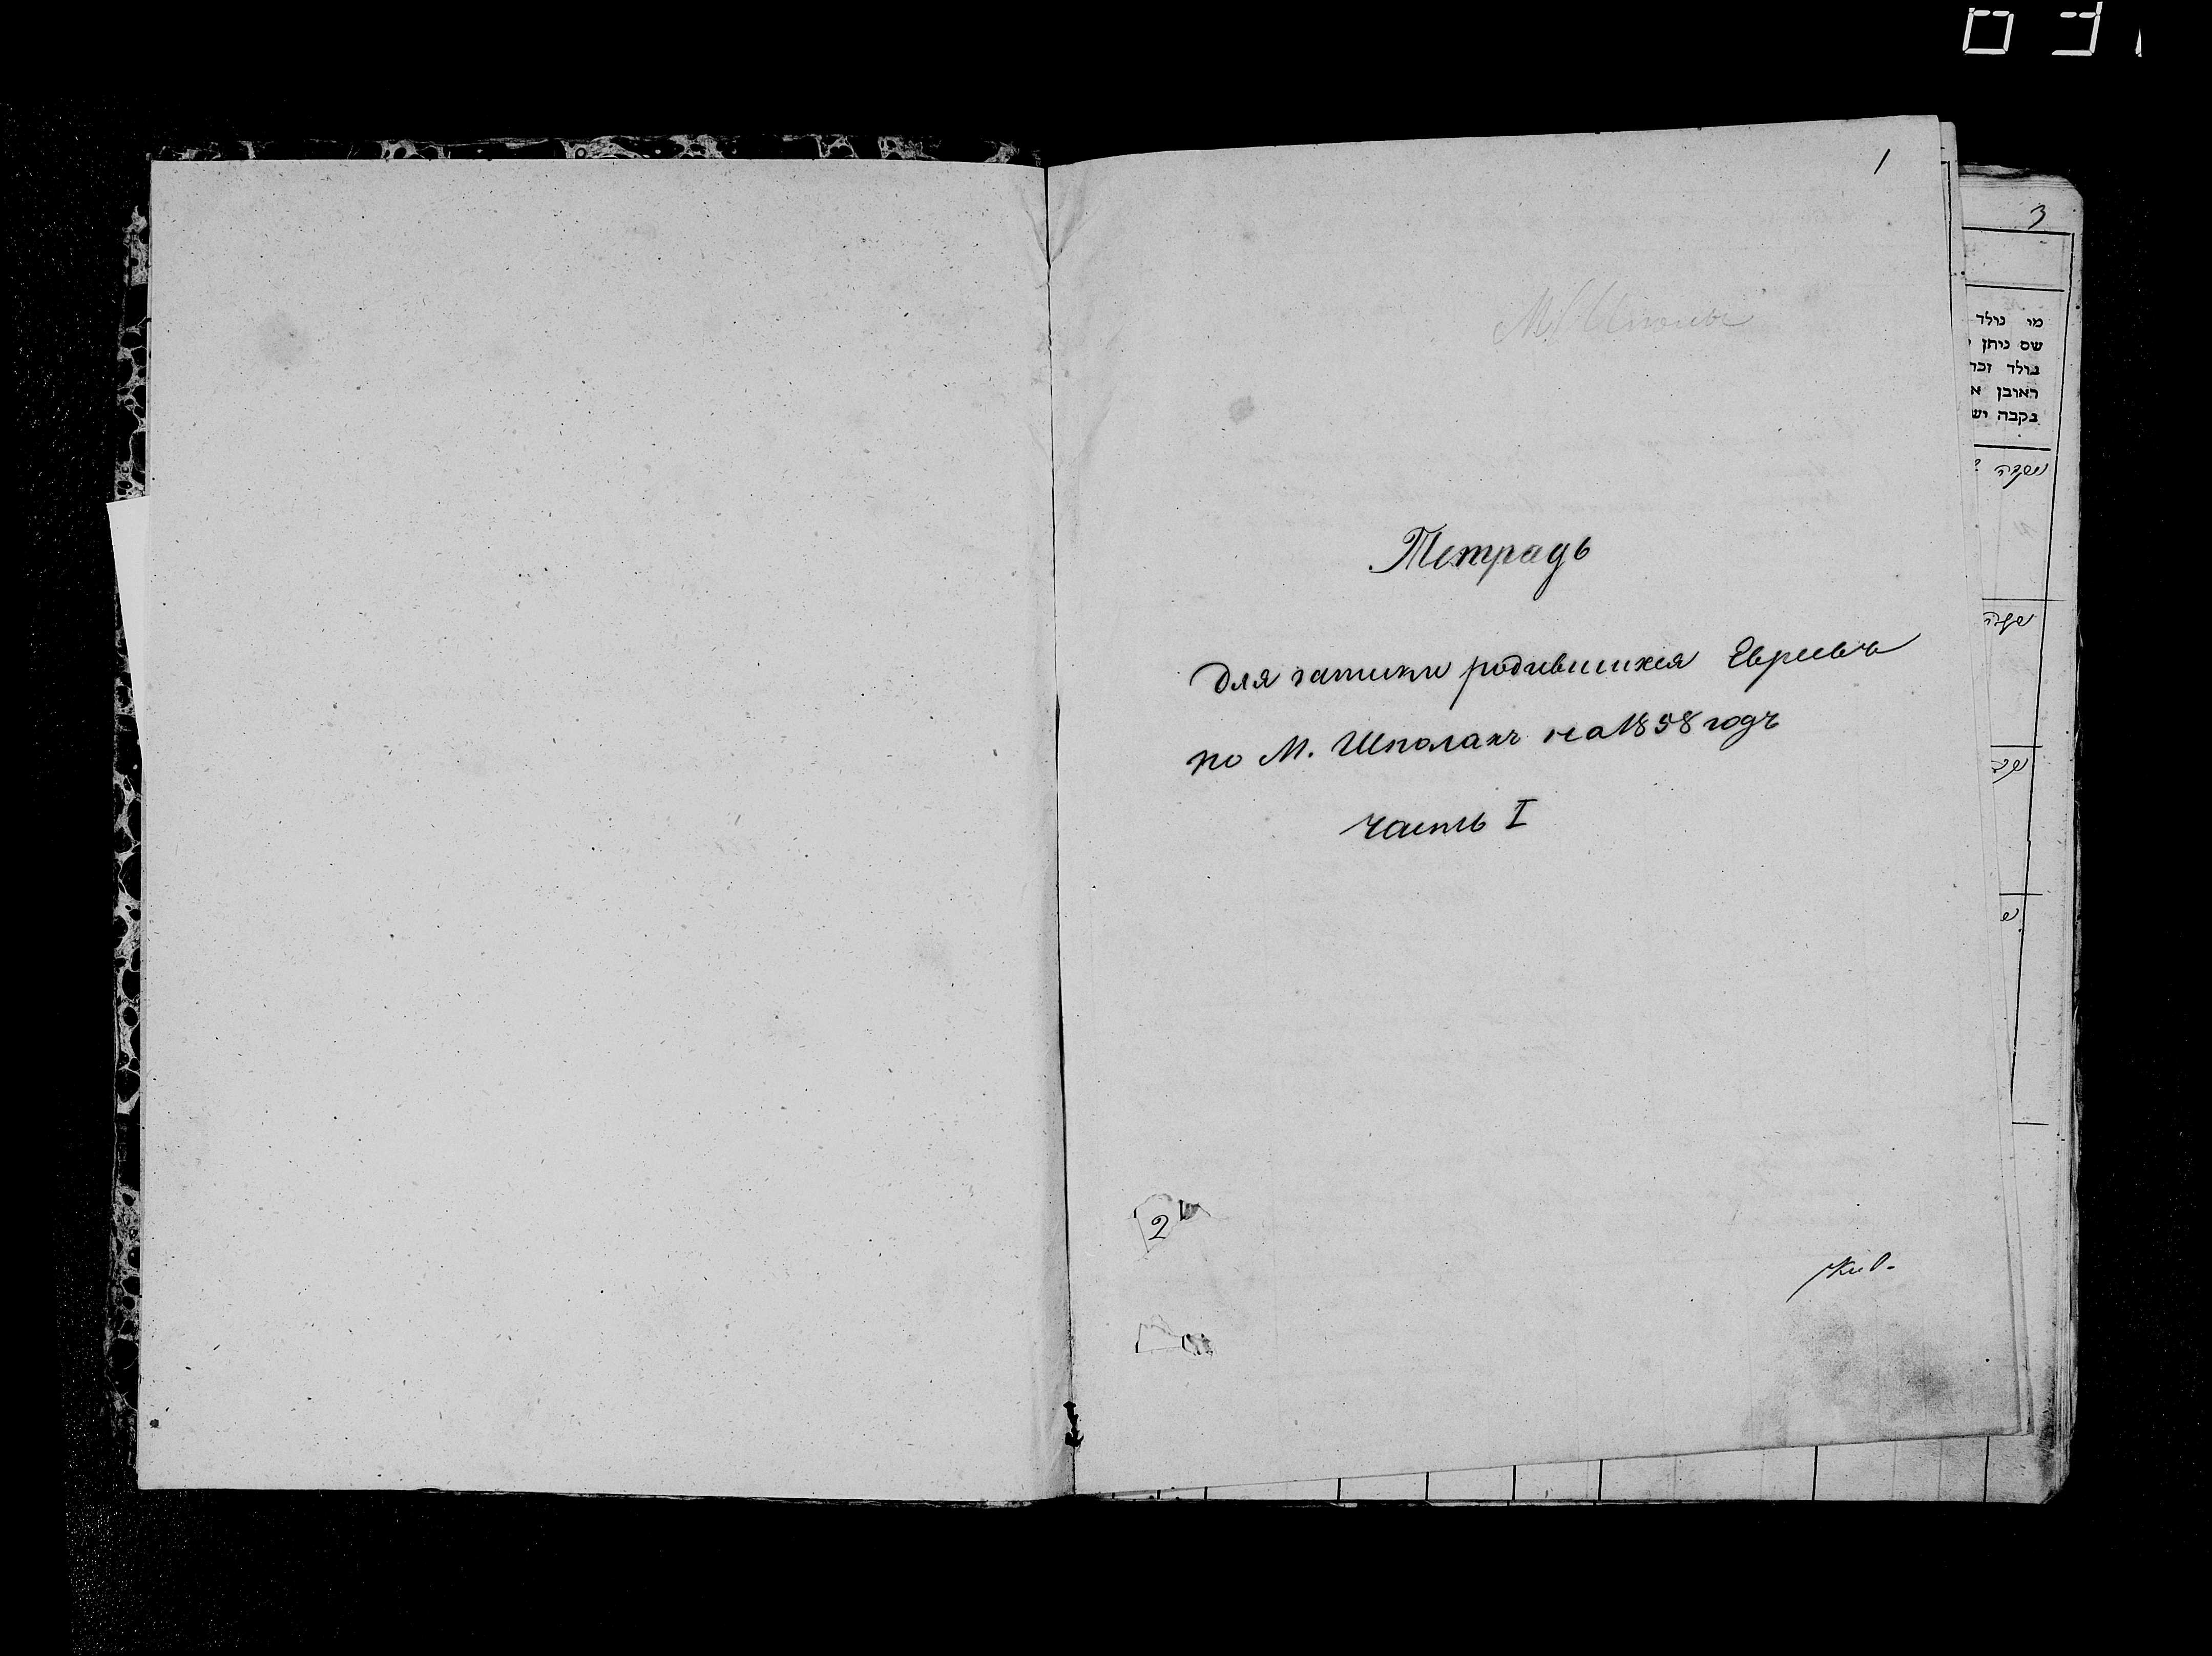 1
Тетрадь
Для записки родившихся Евреевъ
по М. Шполахъ на 1858 годъ
часть I
2
3
מי נולד
שם ניתן
נולד זכר
ראובן א
נקבה יש